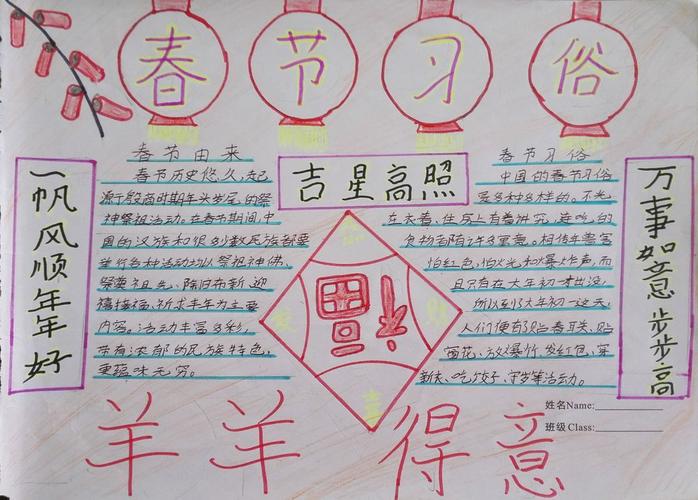 春节习俗
一帆风顺年年好
春节由来
春节历史悠久,起
源于殷商时期年头岁尾的祭
神祭祖活动。在春节期间,中
国的汉族和很多少数民族都要
举行各种活动均以祭祖神佛、
祭奠祖先、除旧布新、迎
禧接福、祈求丰年为主要
内容。活动丰富多彩,
带有浓郁的民族特色,
更蕴味无穷。
吉星高照
福
发
财
喜
春节习俗
中国的春节习俗
是多种多样的。不光
在衣着、住房上有着讲究,连吃的
食物都有许多寓意。相传年兽害
怕红色,怕火光和爆炸声,而
且只有在大年初一才出没,
所以到了大年初一这天,
人们便有了贴春联、贴
窗花、放爆竹、发红包、穿
新衣、吃饺子、守岁等活动。
万事如意步步高
姓名Name:
班级Class:
羊羊得意